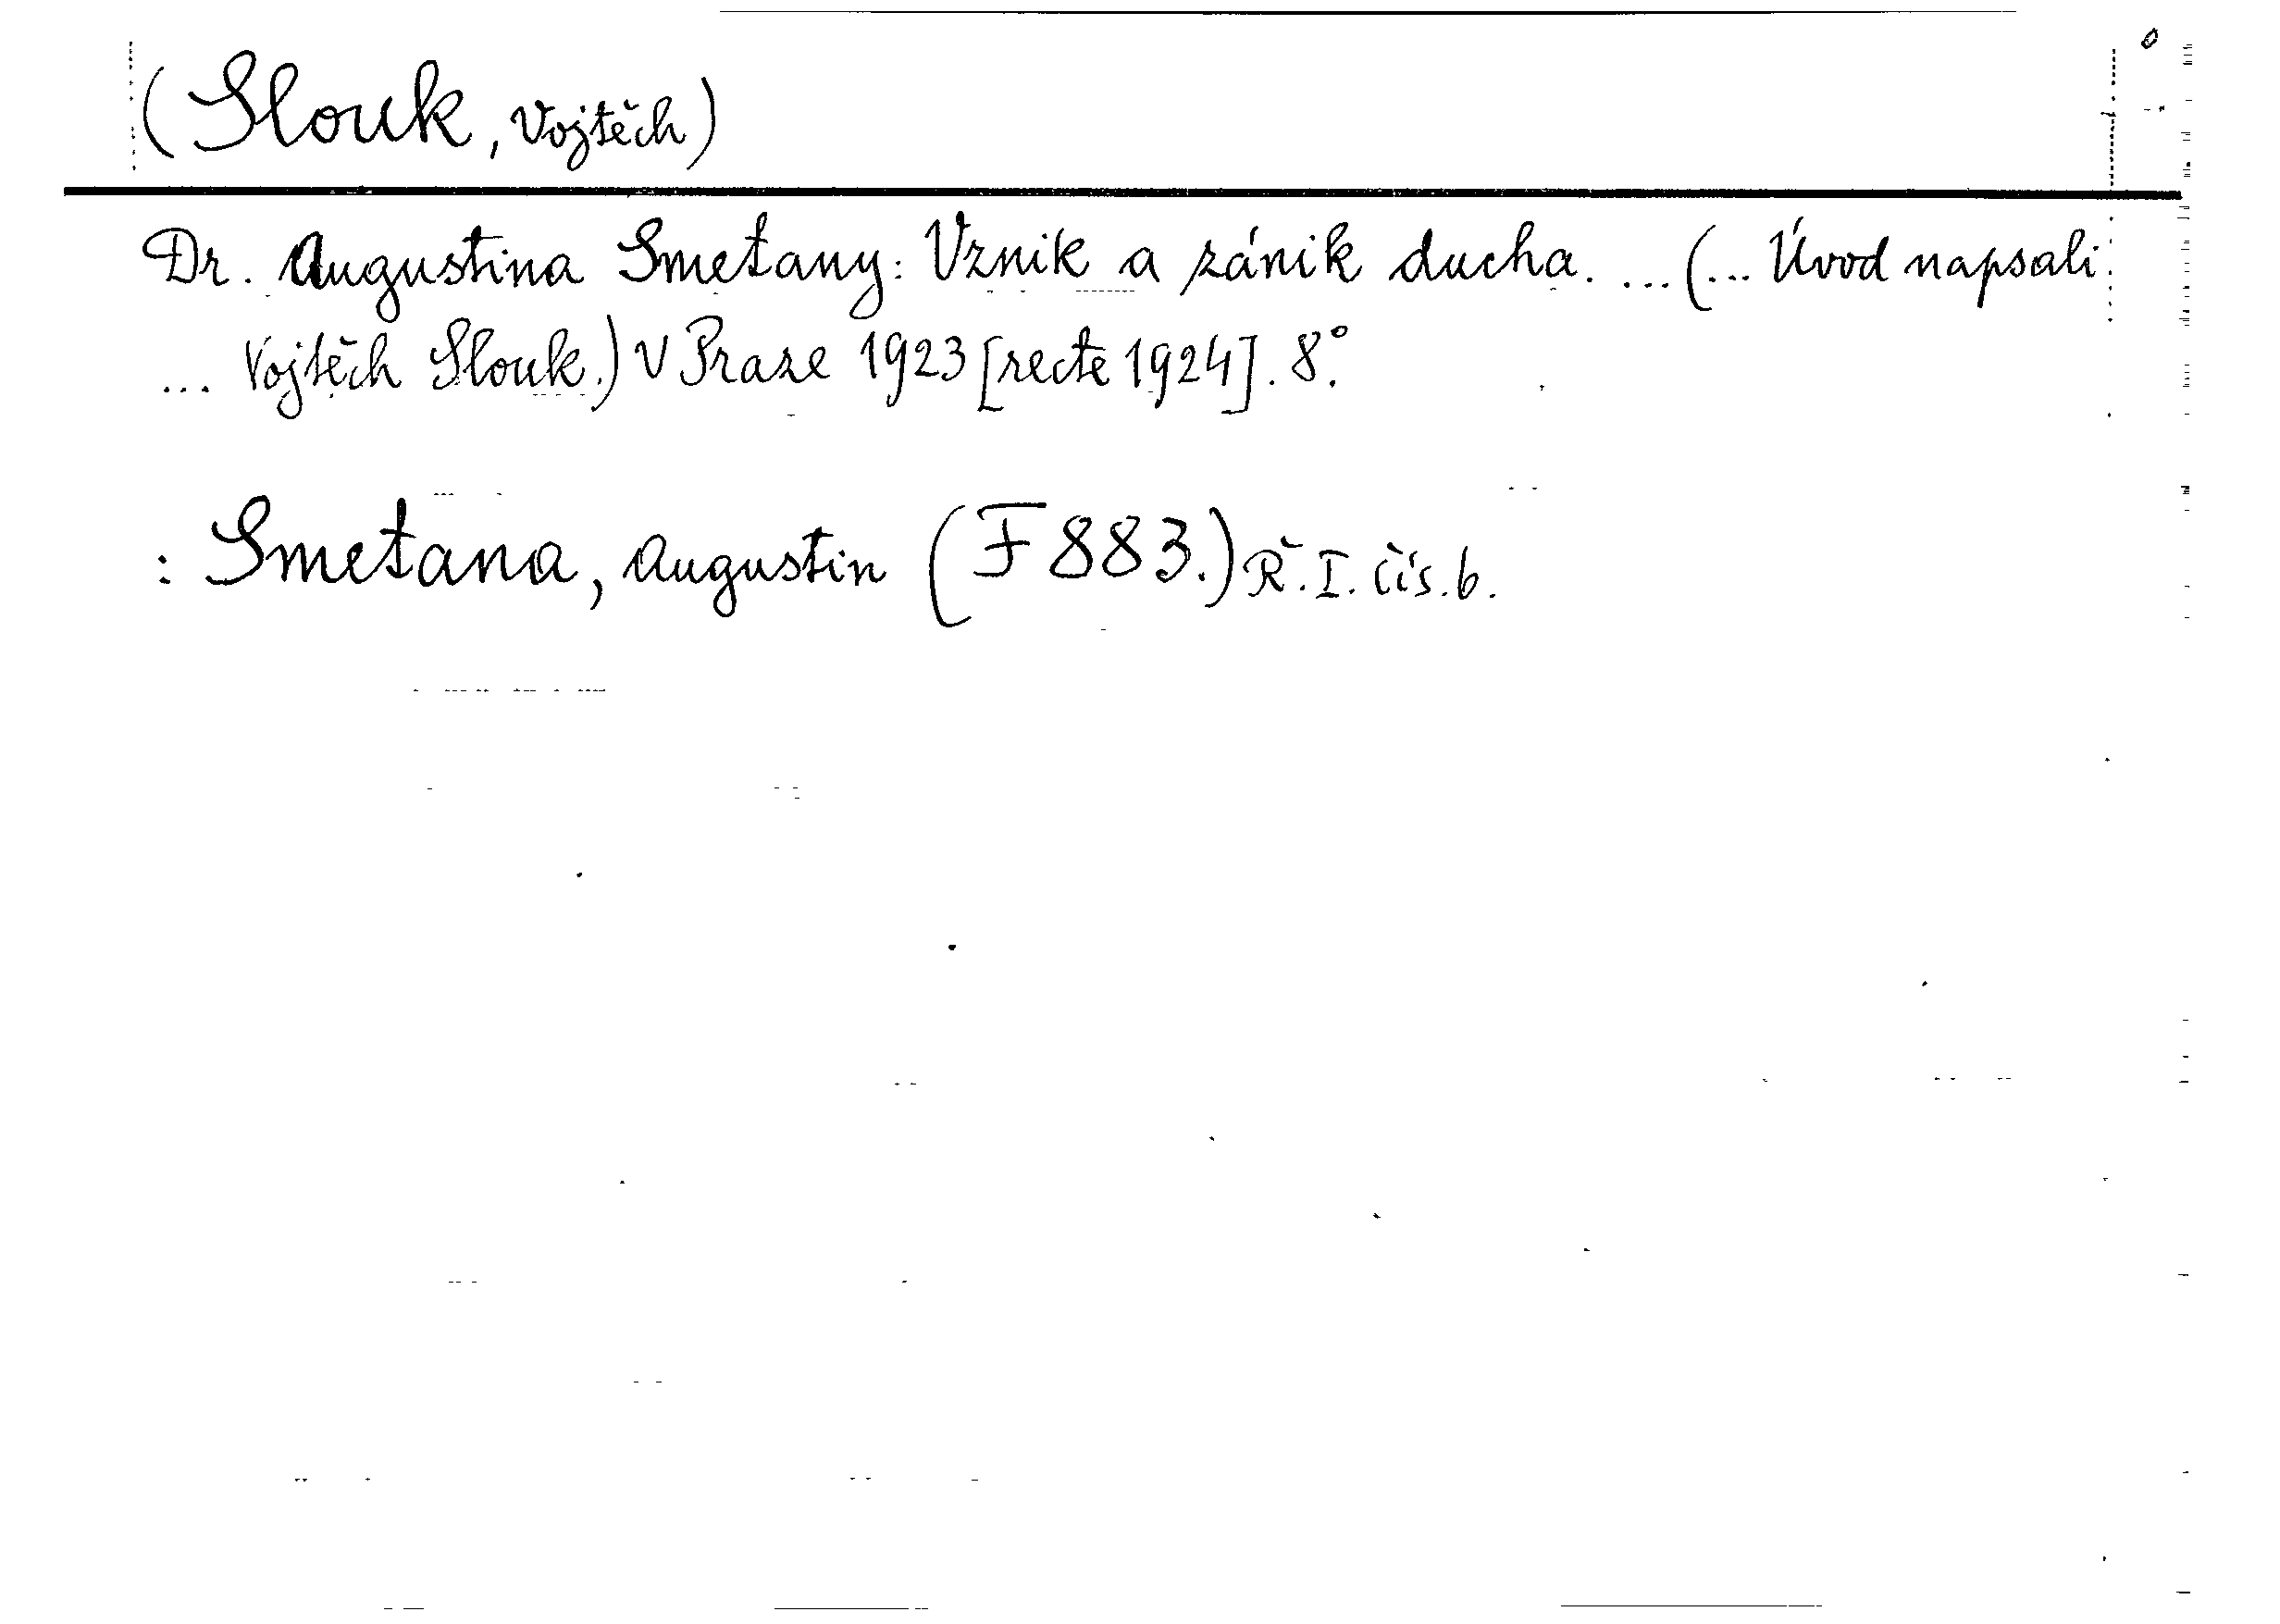 (Slouk, Vojtěch)
Dr. Augustina Smetany: Vznik a zánik ducha. ... (... Úvod napsali
... Vojtěch Slouk.) V Praze 1923 [recte 1924]. 8°.
: Smetana, Augustin (F 883.) Ř. I. čís. 6.